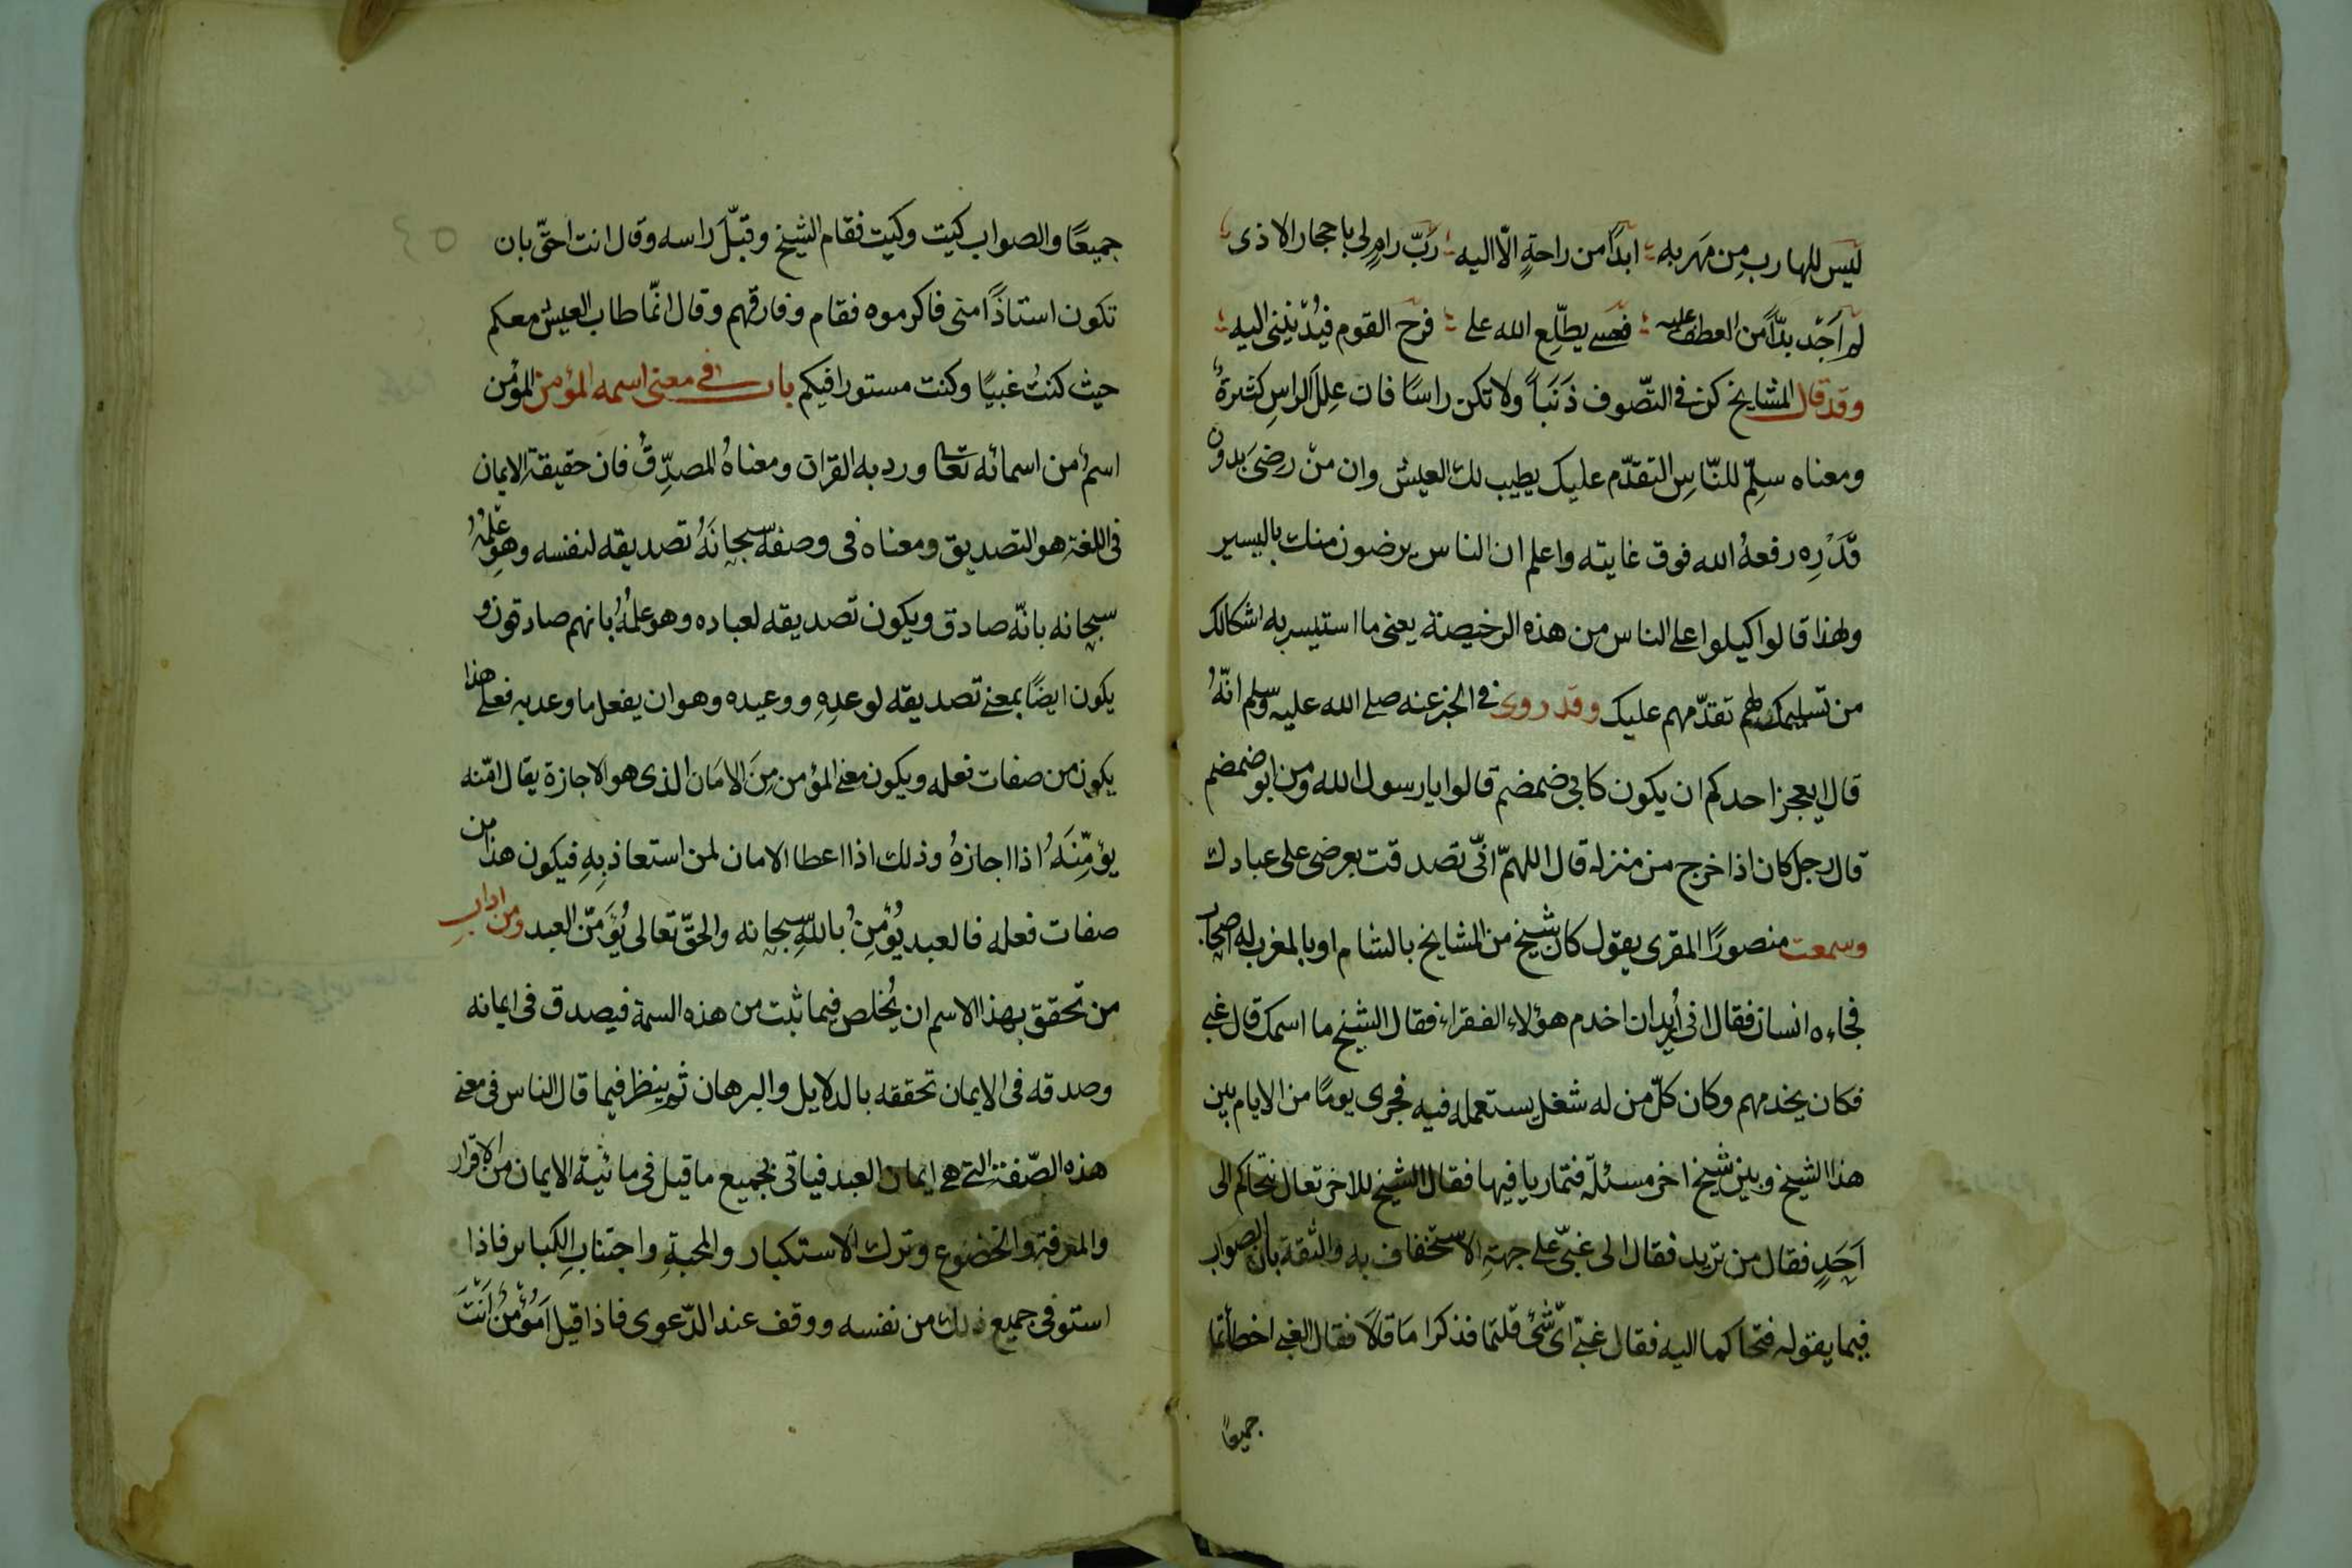 ليس للهارب من مهربه ابدًا من راحةٍ الّا اليه ربّ رامٍ لى باحجار الاذى
لم اجد بدّاً من العطف عليه فعسى يطّلع الله على فرح القوم فيُدْنينى اليه
وقد قال المشايخ كن فى التصّوف ذَنَباً ولا تكن راسًا فان علل الراس كثيرةٌ
ومعناه سلِّم للنّاس التقدّم عليك يطيب لك العيش وان منْ رضىَ بدون
قَدْرِه رفعهُ الله فوق غايته واعلم ان الناس يرضون منك باليسير
ولهذا قالوا كيلوا على الناس من هذه الرخيصة يعنى ما استيسر به اشكالك
من تسليمك لهم تقدّمهم عليك وقد روى فى الخبر عنه صلى الله عليه وسلم انّهُ
قال ايعجز احدكم ان يكون كابى ضمضم قالوا يا رسول الله ومن ابو ضمضم
قال رجل كان اذا خرج من منزله قال اللهمّ انّى تصدقت بعرضى على عبادك
وسمعت منصورًا المقرى يقول كان شيخ من المشايخ بالشام او بالمغرب له اصحاب
فجاءه انسان فقال انى أريد ان اخدم هؤلاء الفقراء فقال الشيخ ما اسمك قال غبى
فكان يخدمهم وكان كلّ من له شغل يستعمله فيه فجرى يومًا من الايام بين
هذا الشيخ وبين شيخ اخر مسئلة فتماريا فيها فقال الشيخ للاخر تعال نتحاكم الى
اَحَدٍ فقال من تريد فقال الى غبىّ على جهة الاستخفاف به والثقة بان الصواب
فيما يقوله فتحاكما اليه فقال غبىّ اىّ شئ قلتما فذكرا ما قالا فقال الغبى اخطأتما
جميعًا
جميعًا والصواب كيت وكيت فقام الشيخ وقبّل راسه وقال انت احقّ بان
تكون استاذًا منى فاكرموه فقام وفارقهم وقال انّما طاب العيش معكم
حيث كنتُ غبيًا وكنت مستورا فيكم باب فى معنى اسمه المؤمن المؤمن
اسمٌ من اسمائه تعالى ورد به القران ومعناهُ المصدِّقُ فان حقيقة الايمان
فى اللغة هو التصديق ومعناه فى وصفه سبحانَهُ تصديقه لنفسه وهو علمُهُ
سبحانه بانّه صادق ويكون تصديقه لعباده وهو علمُهُ بانهم صادقون و
يكون ايضًا بمعنى تصديقه لوعدِهِ ووعيده وهو ان يفعل ما وعد به فعلى هذا
يكون من صفات فعله ويكون معنى المؤمن مِنَ الامَان الذى هو الاجازة يقال امّنه
يؤمِّنَهُ اذا اجازهُ وذلك اذا اعطا الامان لمن استعاذ بِهِ فيكون هذا من
صفات فعله فالعبد يُؤمِنُ باللهِ سبحانه والحقّ تعالى يُؤَمّن العبد ومن ادابِ
من تحقق بهذا الاسم ان يُخلص فيما ثبت من هذه السمة فيصدق فى ايمانه
وصدقه فى الايمان تحققه بالدلايل والبرهان ثم ينظر فيما قال الناس فى معنى
هذه الصّفة التى هى ايمان العبد فياتى بجميع ما قيل فى مائية الايمان من الاقرار
والمعرفة والخضوع وترك الاستكبار والمحبةِ واجتنابِ الكبائر فاذا
استوفى جميع ذلك من نفسه ووقف عند الدّعوى فاذا قيل اَمُؤْمِنٌ اَنْتَ